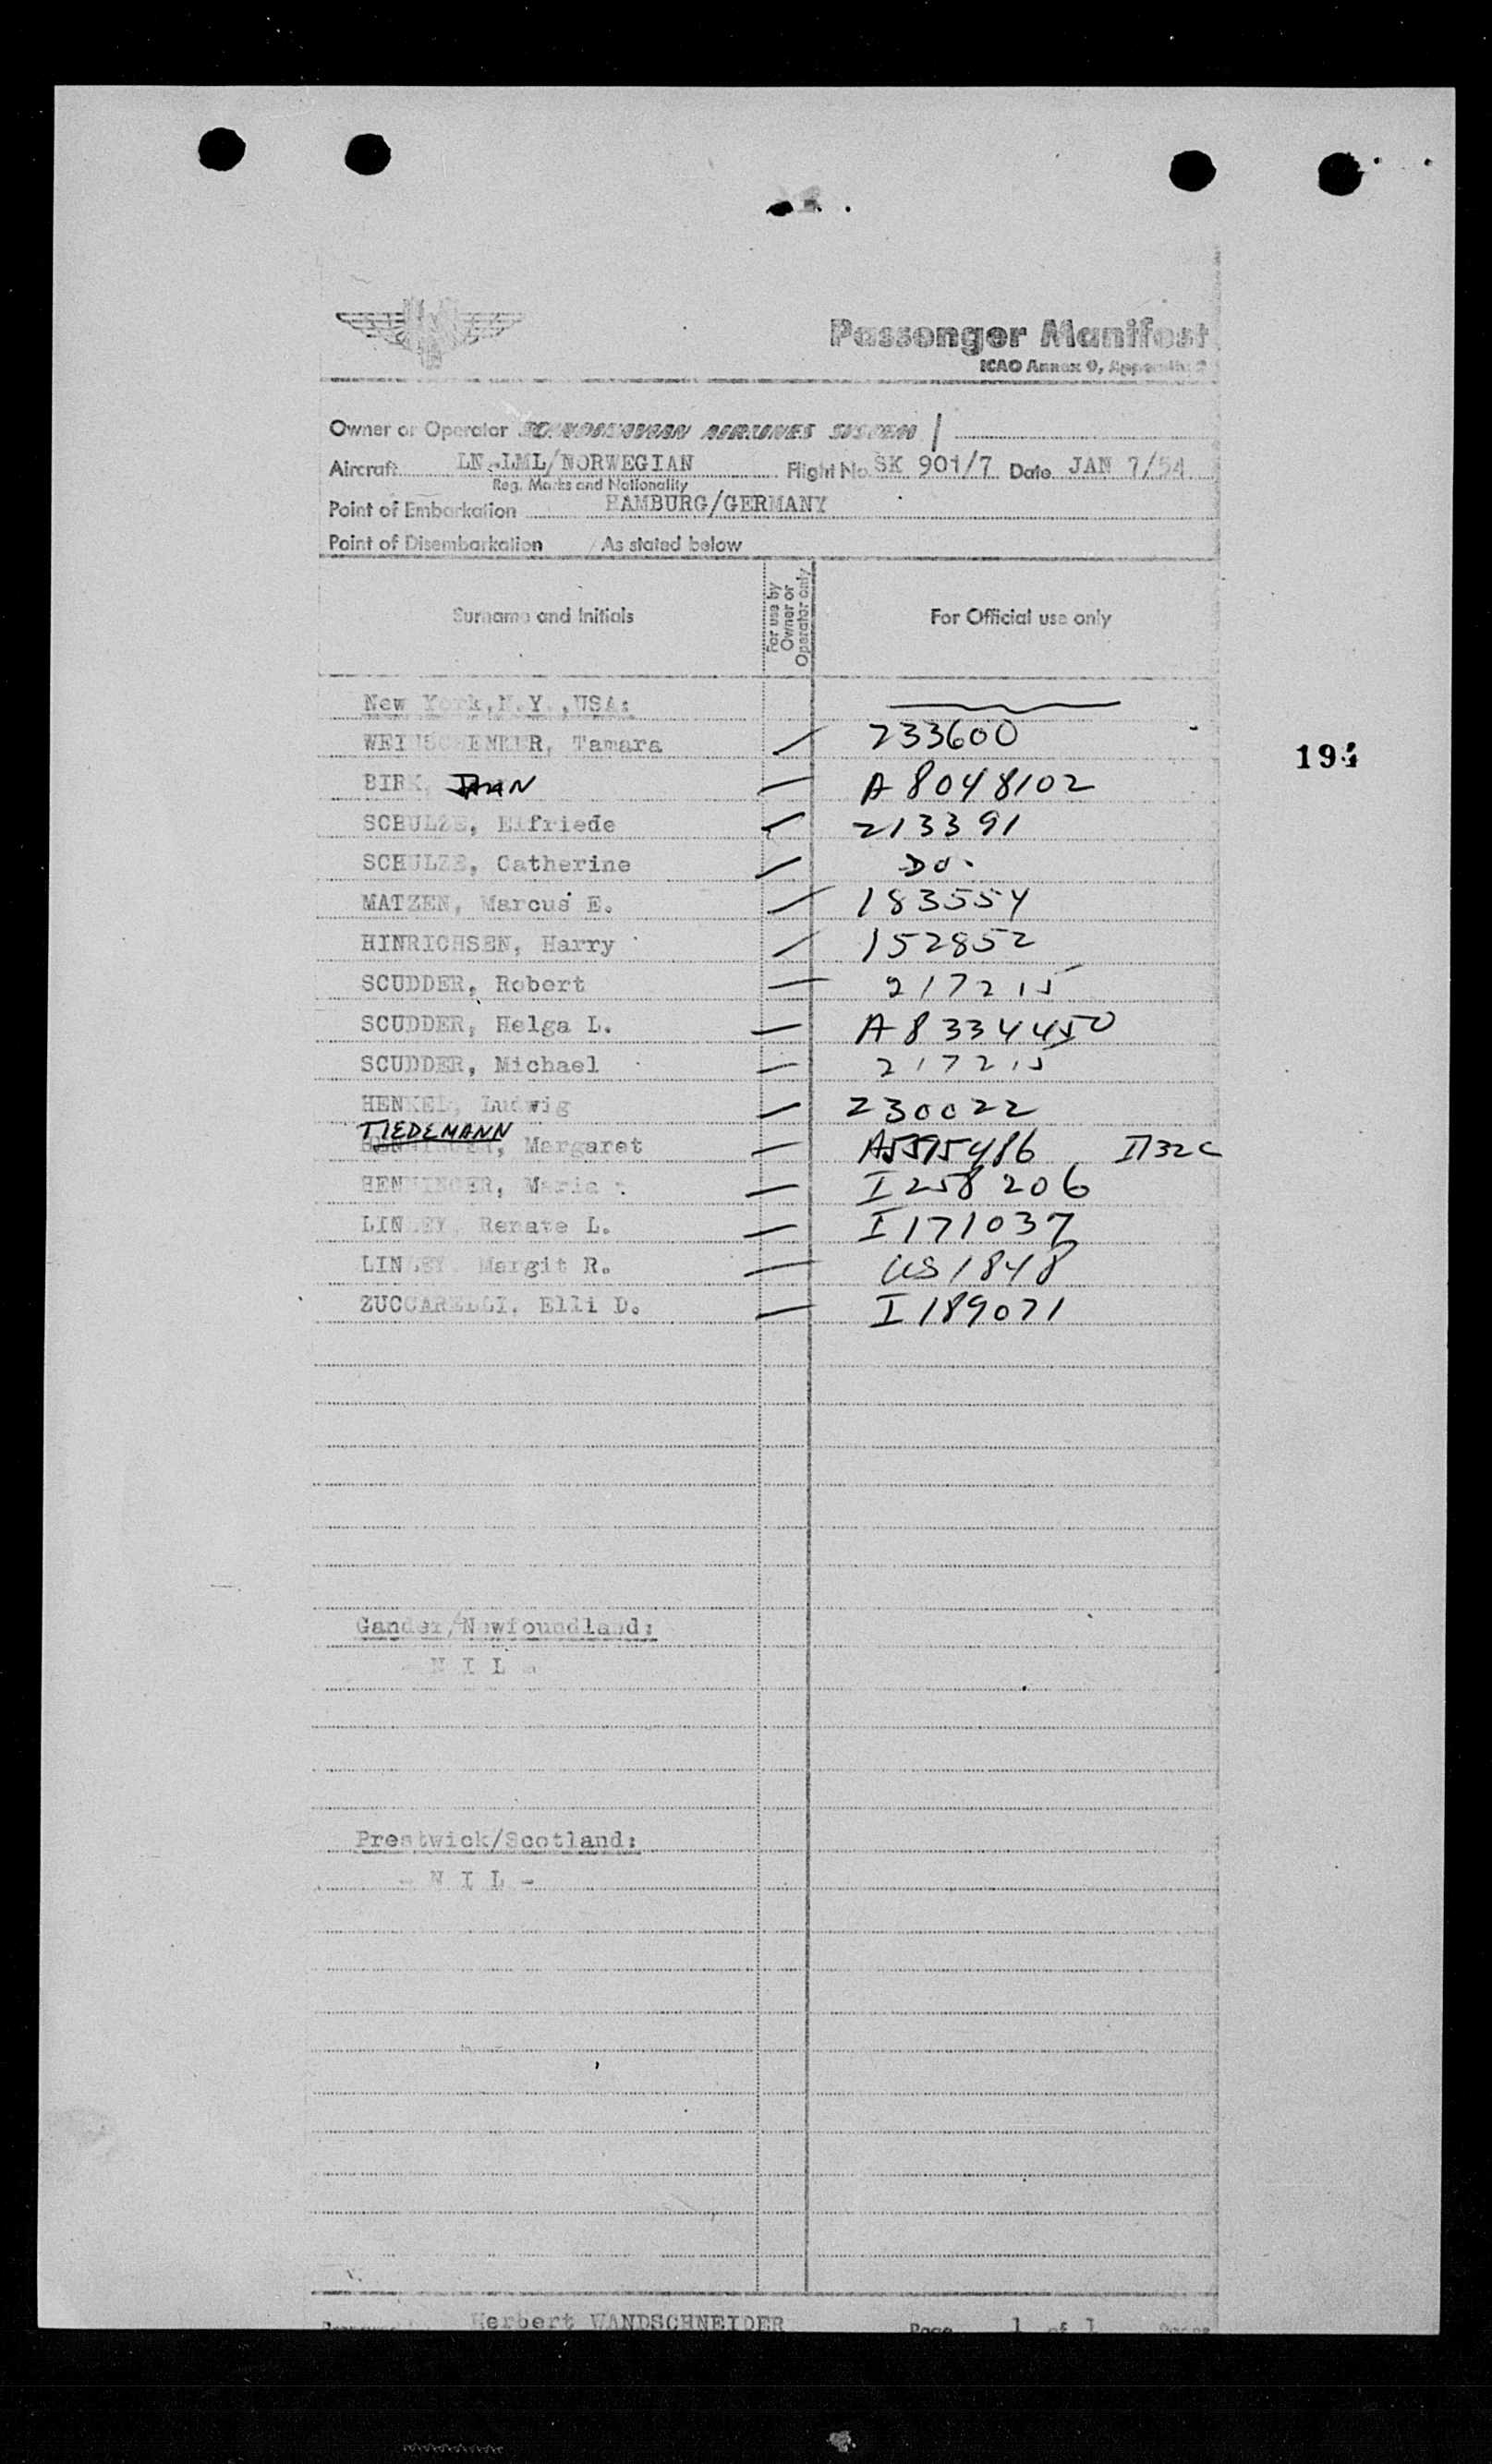 Passenger Manifest
ICAO Annex 9, Appendix
Owner or Operator SCANDINAVIAN AIRLINES SYSTEM
Aircraft LN-LML/NORWEGIAN Flight No. SK 901/7 Date JAN 7/54
Reg. Marks and Nationality
Point of Embarkation HAMBURG/GERMANY
Point of Disembarkation As stated below
Surname and Initials For use by Owner or Operator only For Official use only
New York, N.Y., USA:
Tamara 233600
BIRK, A8048102
SCHULZE, Elfriede 213391
SCHULZE, Catherine Do.
MATZEN, Marcus E. 183554
HINRICHSEN, Harry 152852
SCUDDER, Robert 217215
SCUDDER, Helga L. A8334450
SCUDDER, Michael 217215
HENKEL, Ludwig 230022
TIEDEMANN
Margaret A5595486
HENNINGER, Maria I258206
Renate L. I171037
Margit R. US1848
ZUCCARELLI, Elli D. I189071
Gander/Newfoundland:
- N I L -
Prestwick/Scotland:
- N I L -
Herbert WANDSCHNEIDER Page 1 of 1 Pages